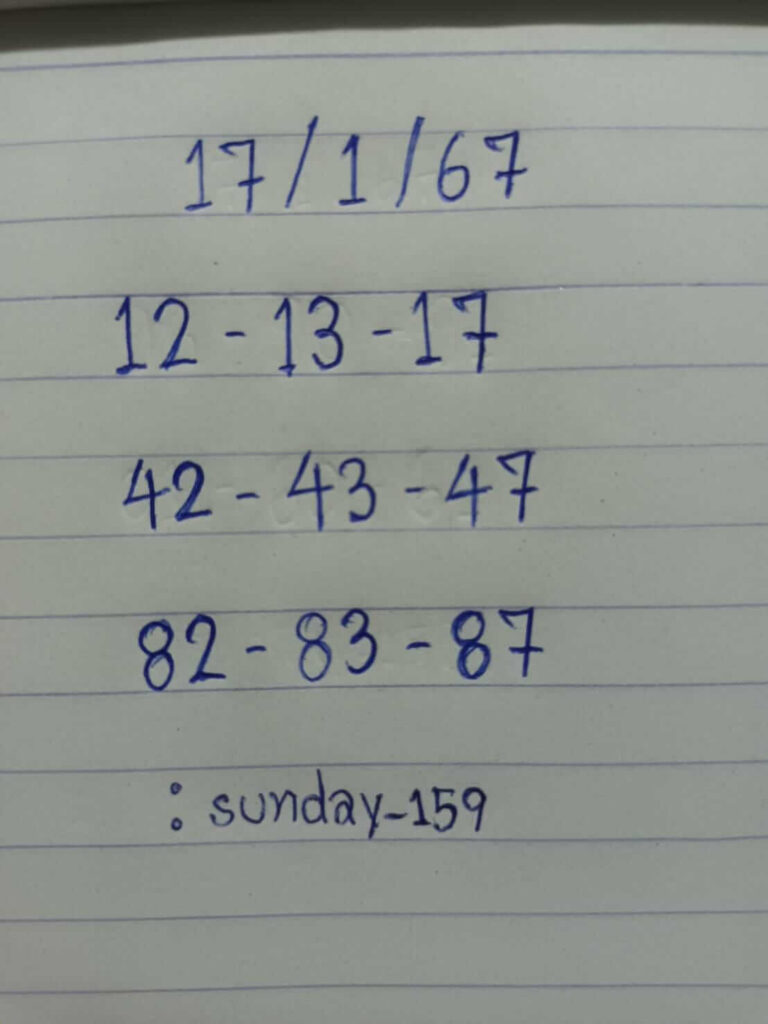 17/1/67
12-13-17
42-43-47
82-83-87
: sunday-159